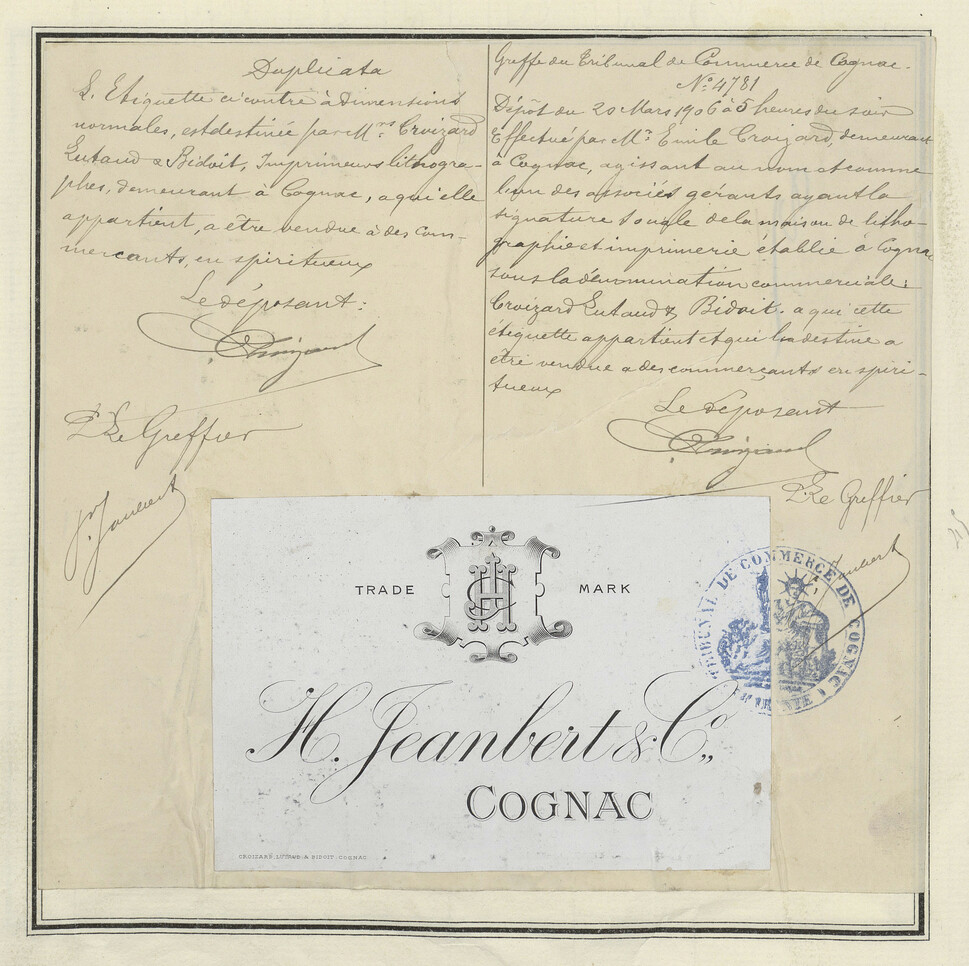 Duplicata
L'Etiquette ci contre à Dimensions
normales, est destinée par Mrs Croizard
Eutaud & Bidoit, Imprimeurs lithogra-
phes, demeurant à Cognac, a qui elle
appartient, a être vendue à des com-
merçants, en spiritueux
Le déposant:
Croizard
Pr Le Greffier
Greffe du Tribunal de Commerce de Cognac.
No 4781
Dépôt du 20 Mars 1906 à 5 heures du soir
Effectué par Mr Emile Croizard, demeurant
à Cognac, agissant au nom et comme
l'un des associés gérants ayant la
signature sociale de la maison de litho-
graphie et imprimerie établie à Cognac
sous la dénomination commerciale:
Croizard Eutaud & Bidoit. a qui cette
étiquette appartient et qui la destine a
être vendue a des commerçants en spiri-
tueux
Le déposant
Croizard
Pr Le Greffier
TRADE MARK
TRIBUNAL DE COMMERCE DE COGNAC
H. Jeanbert & Co,,
COGNAC
CROIZARD, EUTAUD & BIDOIT, COGNAC